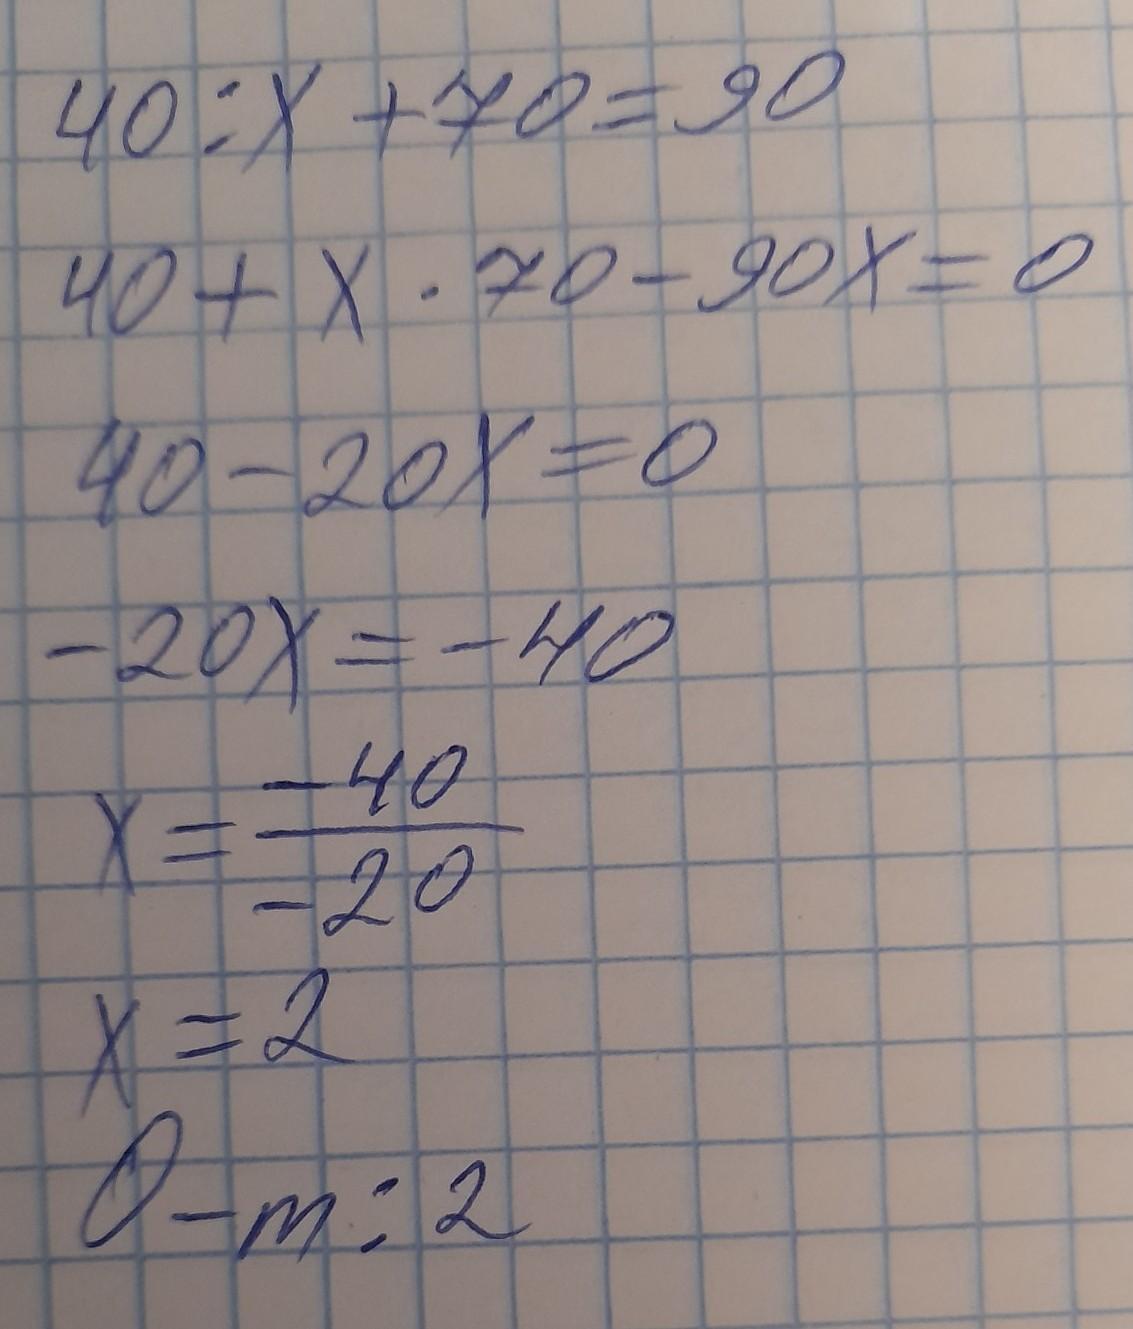 40:x+70=90
40+x·70-90x=0
40-20x=0
-20x=-40
x=-40/-20
x=2
О-т:2